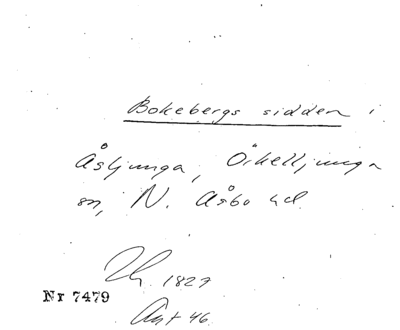 Bokebergs sidden i
Åsljunga, Örkelljunga
sn, N. Åsbo hd
1827
Nr 7479
Ant 46